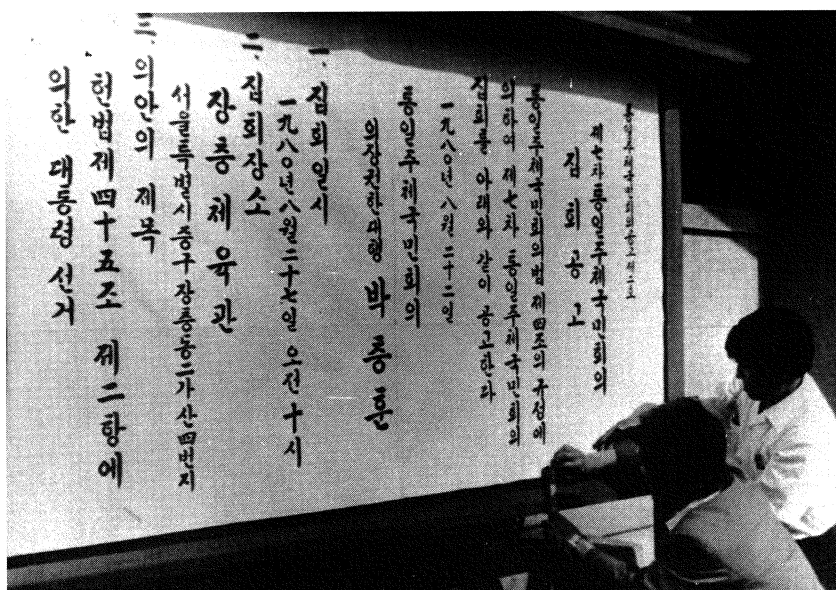 통일주체국민회의공고제二호
제七차통일주체국민회의
집회공고
통일주체국민회의법 제四조의 규정에
의하여 제七차 통일주체국민회의
집회를 아래와 같이 공고한다
一九八〇년八월二十二일
통일주체국민회의
의장권한대행 박충훈
一. 집회일시
一九八〇년八월二十七일 오전 十시
二. 집회장소
장충체육관
서울특별시중구장충동二가산四번지
三. 의안의 제목
헌법제四十五조 제二항에
의한 대통령 선거